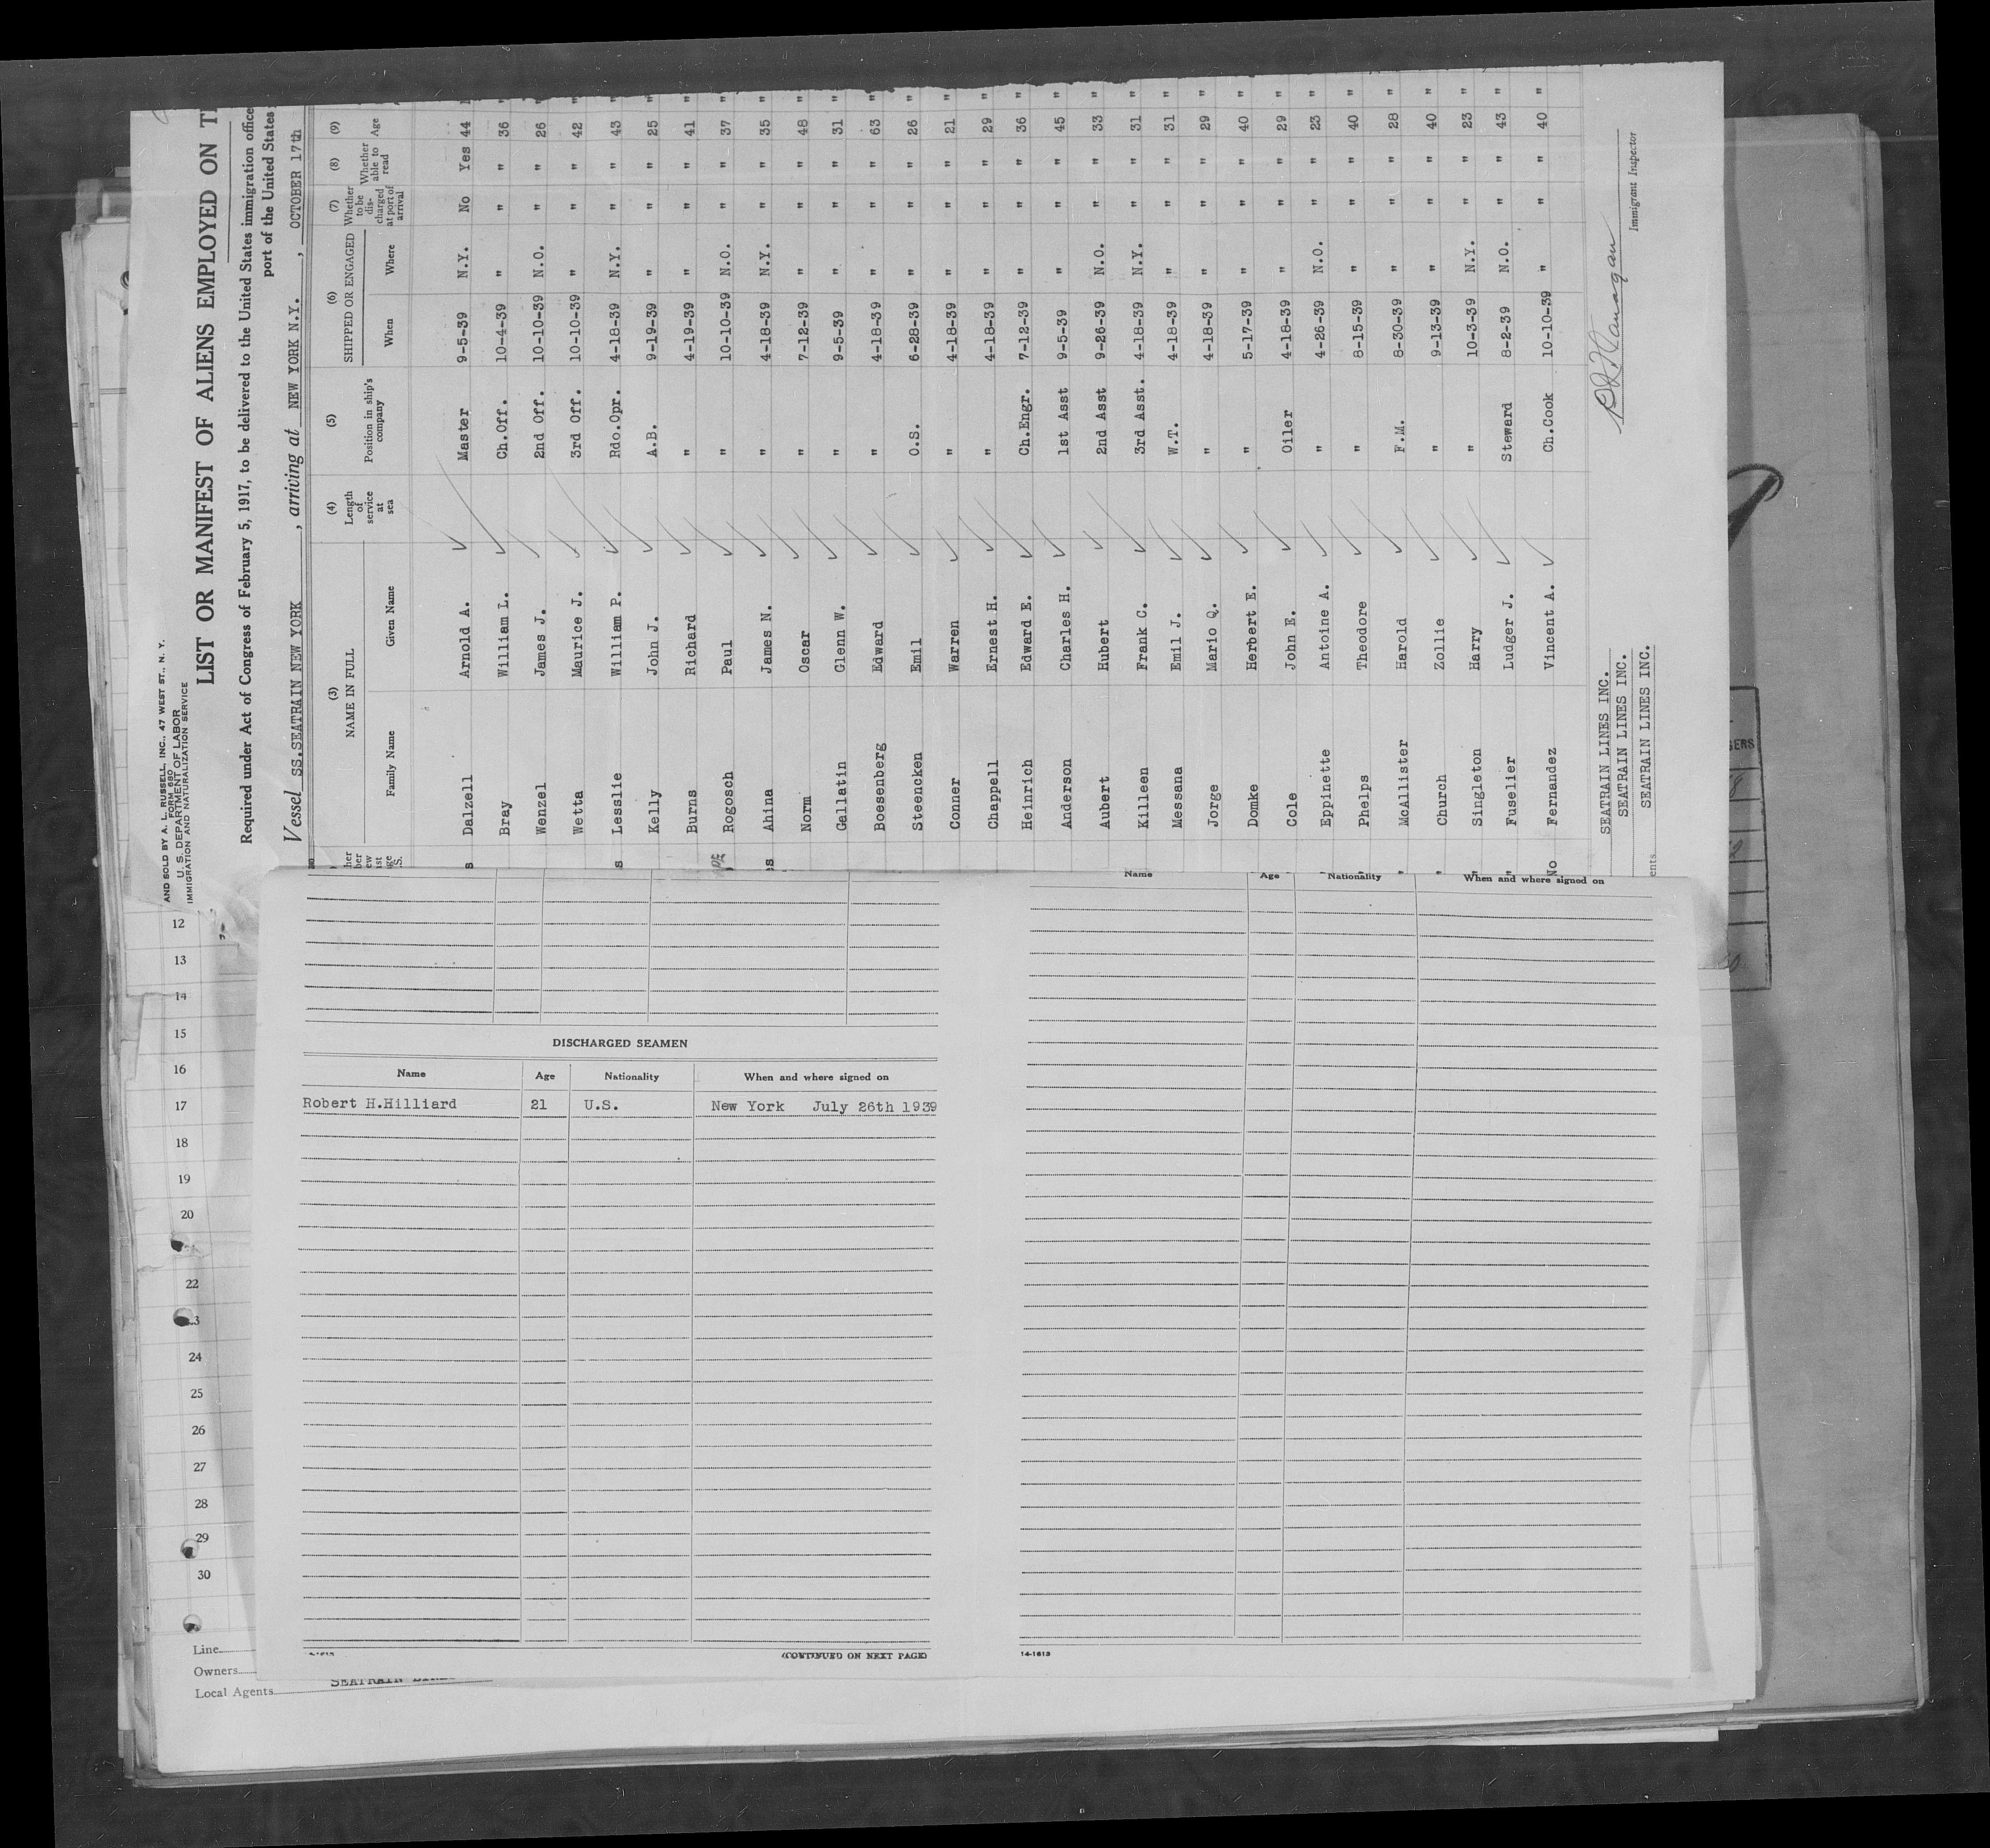 AND SOLD BY A. L. RUSSELL, INC., 47 WEST ST., N. Y.
FORM 680
U. S. DEPARTMENT OF LABOR
IMMIGRATION AND NATURALIZATION SERVICE
LIST OR MANIFEST OF ALIENS EMPLOYED ON T
Required under Act of Congress of February 5, 1917, to be delivered to the United States immigration office
port of the United States
Vessel SS.SEATRAIN NEW YORK , arriving at NEW YORK N.Y. , OCTOBER 17th
(3) (4) (5) (6) (7) (8) (9)
NAME IN FULL Length of service at sea Position in ship's company SHIPPED OR ENGAGED Whether to be discharged at port of arrival Whether able to read Age
Family Name Given Name When Where
Dalzell Arnold A. Master 9-5-39 N.Y. No Yes 44
Bray William L. Ch.Off. 10-4-39 " " " 36 "
Wenzel James J. 2nd Off. 10-10-39 N.O. " " 26 "
Wetta Maurice J. 3rd Off. 10-10-39 " " " 42 "
Lesslie William P. Rdo.Opr. 4-18-39 N.Y. " " 43 "
Kelly John J. A.B. 9-19-39 " " " 25 "
Burns Richard " 4-19-39 " " " 41 "
Rogosch Paul " 10-10-39 N.O. " " 37 "
Ahina James N. " 4-18-39 N.Y. " " 35 "
Norm Oscar " 7-12-39 " " " 48 "
Gallatin Glenn W. " 9-5-39 " " " 31 "
Boesenberg Edward " 4-18-39 " " " 63 "
Steencken Emil O.S. 6-28-39 " " " 26 "
Conner Warren " 4-18-39 " " " 21 "
Chappell Ernest H. " 4-18-39 " " " 29 "
Heinrich Edward E. Ch.Engr. 7-12-39 " " " 36 "
Anderson Charles H. 1st Asst 9-5-39 " " " 45 "
Aubert Hubert 2nd Asst 9-26-39 N.O. " " 33 "
Killeen Frank C. 3rd Asst. 4-18-39 N.Y. " " 31 "
Messana Emil J. W.T. 4-18-39 " " " 31 "
Jorge Mario Q. " 4-18-39 " " " 29 "
Domke Herbert E. " 5-17-39 " " " 40 "
Cole John E. Oiler 4-18-39 " " " 29 "
Eppinette Antoine A. " 4-26-39 N.O. " " 23 "
Phelps Theodore " 8-15-39 " " " 40 "
McAllister Harold F.M. 8-30-39 " " " 28 "
Church Zollie " 9-13-39 " " " 40 "
Singleton Harry " 10-3-39 N.Y. " " 23 "
Fuselier Ludger J. Steward 8-2-39 N.O. " " 43 "
No Fernandez Vincent A. Ch.Cook 10-10-39 " " " 40 "
SEATRAIN LINES INC.
SEATRAIN LINES INC.
SEATRAIN LINES INC.
Immigrant Inspector
12
13
14
15
16
17
18
19
20
22
24
25
26
27
28
29
30
Line
Owners
Local Agents
DISCHARGED SEAMEN
Name Age Nationality When and where signed on
Robert H.Hilliard 21 U.S. New York July 26th 1939
(CONTINUED ON NEXT PAGE)
Name Age Nationality When and where signed on
14-1613